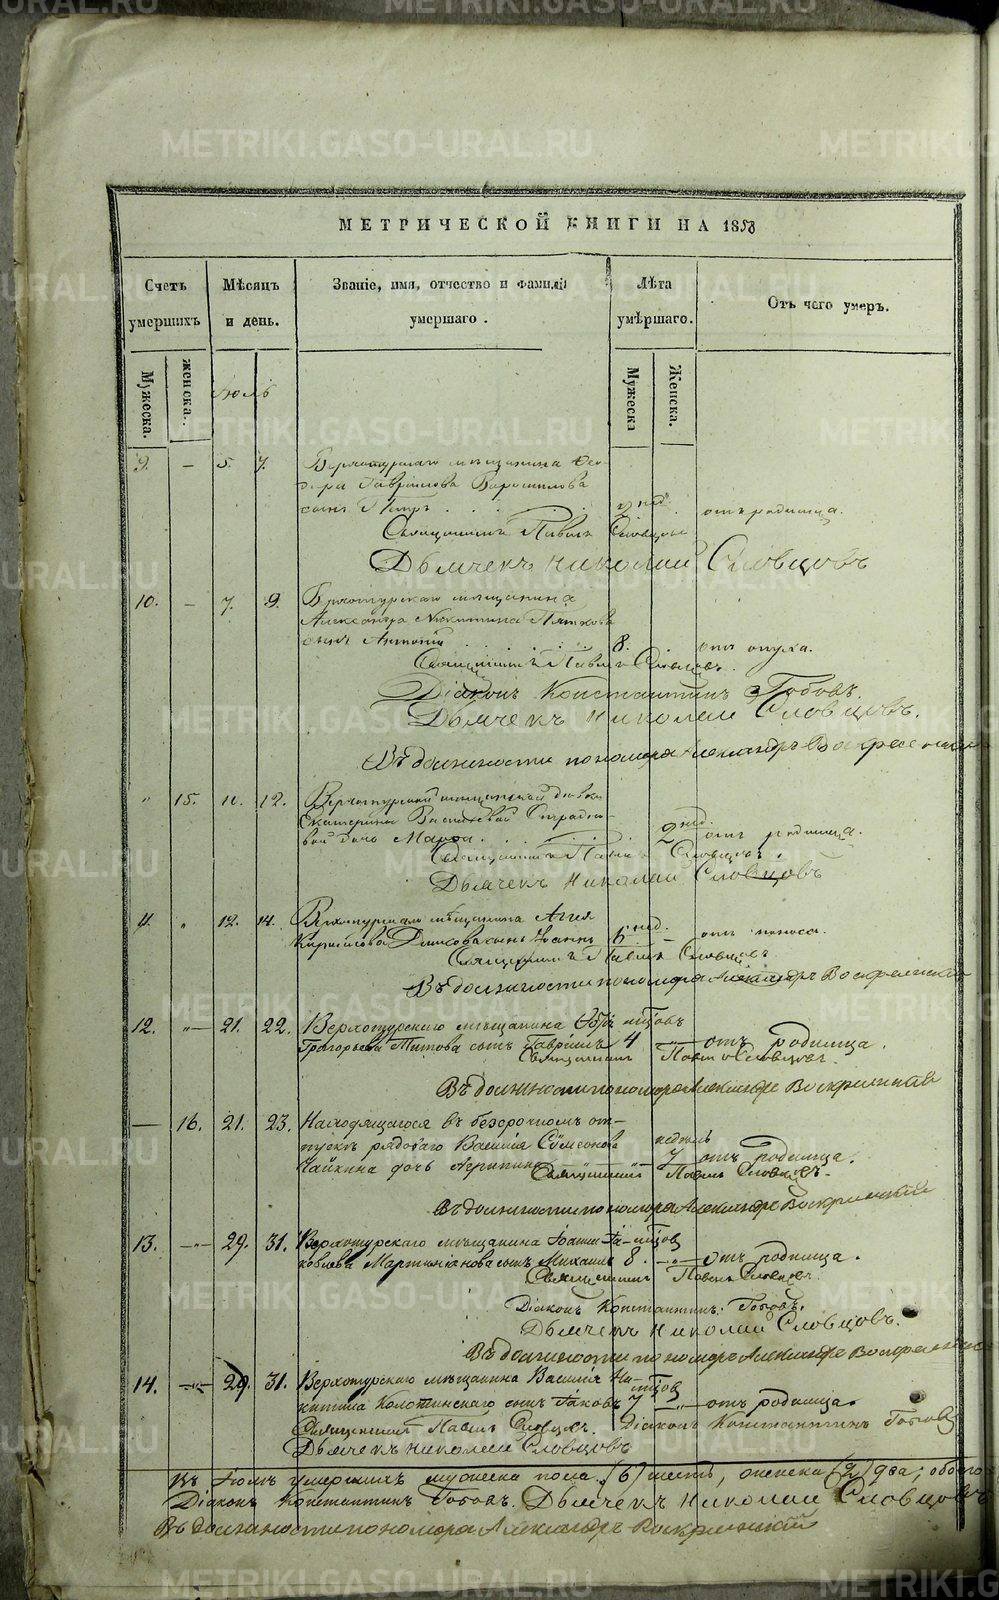 МЕТРИЧЕСКОЙ КНИГИ НА 1858
Счетъ умершихъ
Мѣсяцъ и день.
Званіе, имя, отчество и фамилія умершаго.
Лѣта умѣршаго.
Отъ чего умеръ.
Мужеска.
женска.
Мужеска
Женска.
Іюль
9. — 5. 7. Верхотурскаго мѣщанина Ѳео-
дора Гаврилова Ворошилова
сынъ Петръ 2 нед. отъ родимца.
Священникъ Павелъ Словцовъ
Дьячекъ Николай Словцовъ
10. — 7. 9. Верхотурскаго мѣщанина
Александра Никитина Пяткова
сынъ Антоній 8. отъ опуха.
Священникъ Павелъ Словцовъ.
Діаконъ Константинъ Гобовъ.
Дьячекъ Николай Словцовъ.
Въ должности пономаря Александръ Воскресенскій
" 15. 11. 12. Верхотурской мѣщанской дѣвки
Екатерины
вой дочь Марѳа 2 нед. отъ родимца.
Священникъ Павелъ Словцовъ.
Дьячекъ Николай Словцовъ
11. " 12. 14. Верхотурскаго мѣщанина Аггея
Кирилова сынъ Іоаннъ 6 нед. — отъ поноса.
Священникъ Павелъ Словцовъ
Въ должности пономаря Александръ Воскресенскій
12. "— 21. 22. Верхотурскаго мѣщанина
Григорьева Титова сынъ Гавріилъ 4 — отъ родимца.
Священникъ Павелъ Словцовъ.
Въ должности пономаря Александръ Воскресенскій
— 16. 21. 23. Находящагося въ безсрочномъ от-
пускѣ рядоваго Василія Сѵмеонова недѣль
Чайкина дочь Агрипина 7 — отъ родимца.
Священникъ Павелъ Словцовъ.
Въ должности пономаря Александръ Воскресенскій
13. —"— 29. 31. Верхотурскаго мѣщанина Іоанна Іа-
ковлева Мартиніанова сынъ Михаилъ 8. —"— отъ родимца.
Священникъ Павелъ Словцовъ.
Діаконъ Константинъ Гобовъ.
Дьячекъ Николай Словцовъ.
Въ должности пономаря Александръ Воскресенскій
14. —"— 29. 31. Верхотурскаго мѣщанина Василія Ни-
китина сынъ Іаковъ 7 —"— отъ родимца.
Священникъ Павелъ Словцовъ. Діаконъ Константинъ Гобовъ
Дьячекъ Николай Словцовъ
Въ Іюлѣ умершихъ мужеска пола (6) шесть, женска (2) два; обоего
Діаконъ Константинъ Гобовъ. Дьячекъ Николай Словцовъ
Въ должности пономаря Александръ Воскресенскій
METRIKI.GASO-URAL.RU